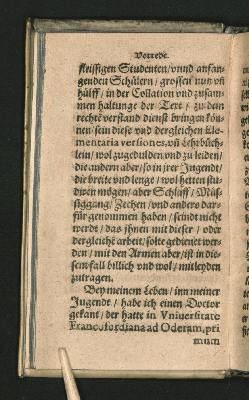 Vorrede.
fleissigen Studenten / vnnd anfan-
genden Schülern / grossen nutz vñ
hülff / in der Collation vnd zusam-
men haltunge der Text / zu dem
rechtẽ verstand dienst bringen kön-
nen / sein diese vnd dergleichen Ele-
mentaria versiones, vñ Lehrbüch-
lein / wol zugedulden vnd zu leiden /
die andern aber / so in jrer Jugendt /
die breite vnd lenge / wol hetten stu-
diren mögen / aber Schlaff / Müs-
siggang / Zechen / vnd anders dar-
für genommen haben / seindt nicht
werdt / das jhnen mit dieser / oder
dergleichẽ arbeit / solte gedienet wer-
den / mit den Armen aber / ist in die-
sem fall billich vnd wol / mitleyden
zutragen.
Bey meinem Leben / inn meiner
Jugendt / habe ich einen Doctor
gekant / der hatte in Vniuersitate
Francofordiana ad Oderam, pri
mum